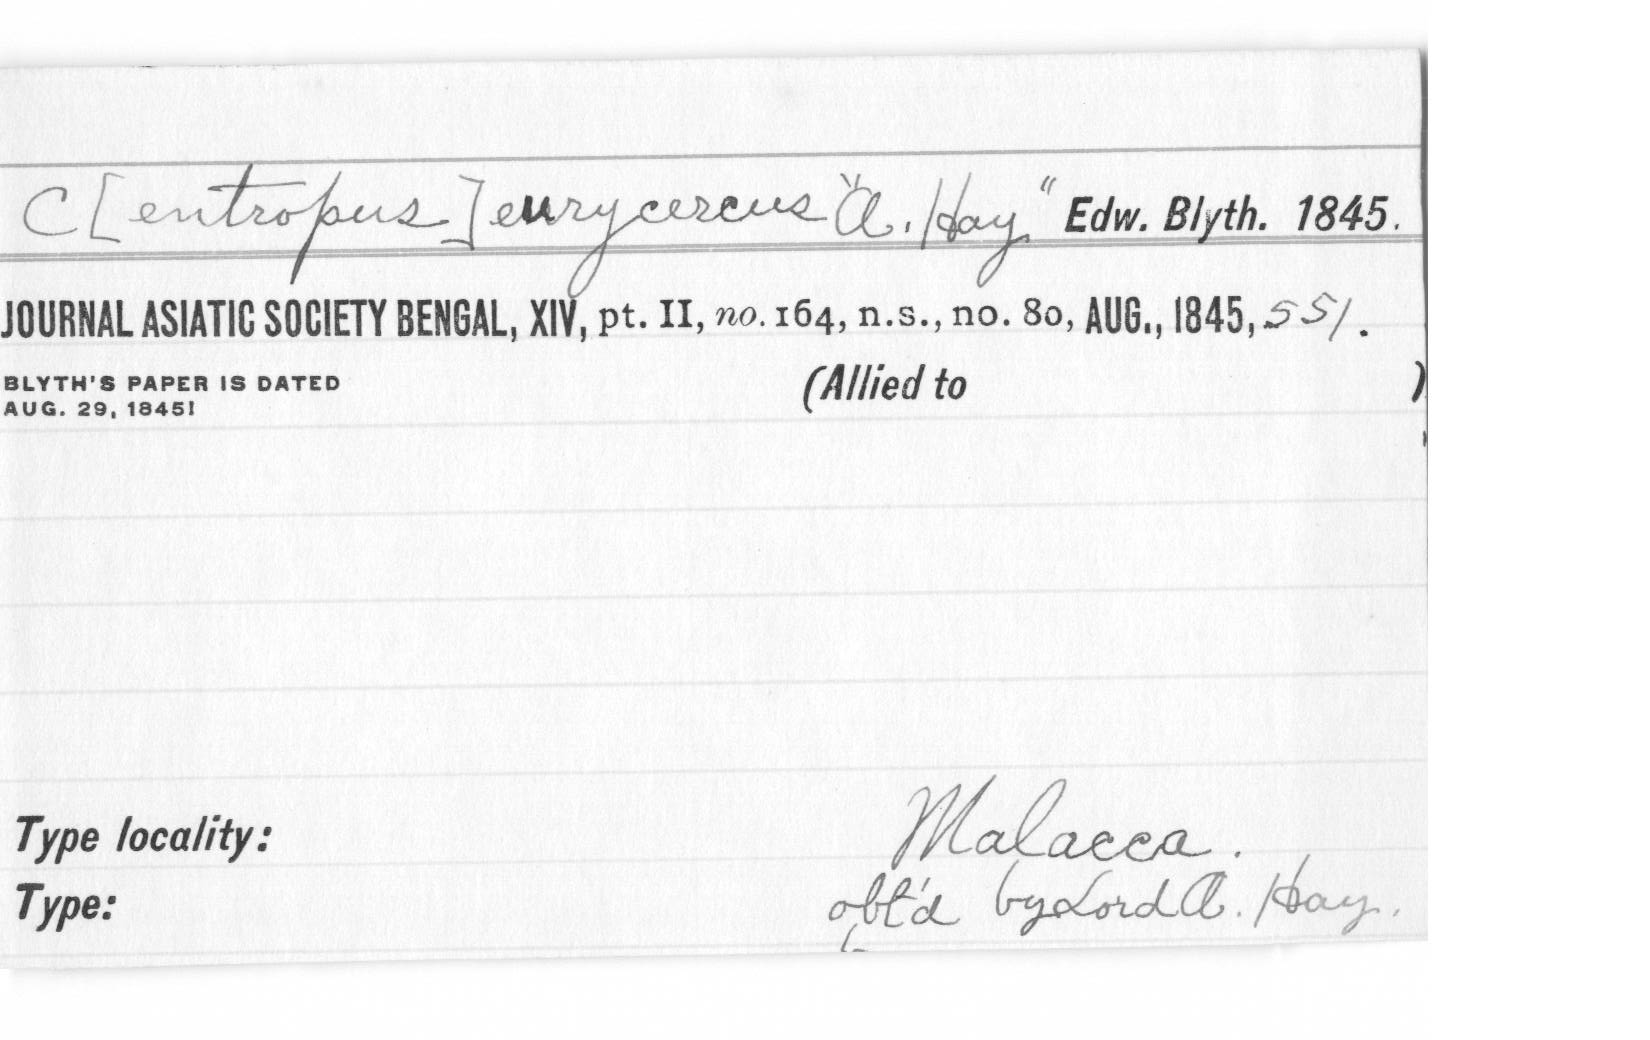 C[entropus] eurycercus "A. Hay" Edw. Blyth. 1845.
JOURNAL ASIATIC SOCIETY BENGAL, XIV, pt. II, no. 164, n.s., no. 80, AUG., 1845, 551.
BLYTH'S PAPER IS DATED (Allied to )
AUG. 29, 1845!
Type locality: Malacca.
Type: obt'd by Lord A. Hay.